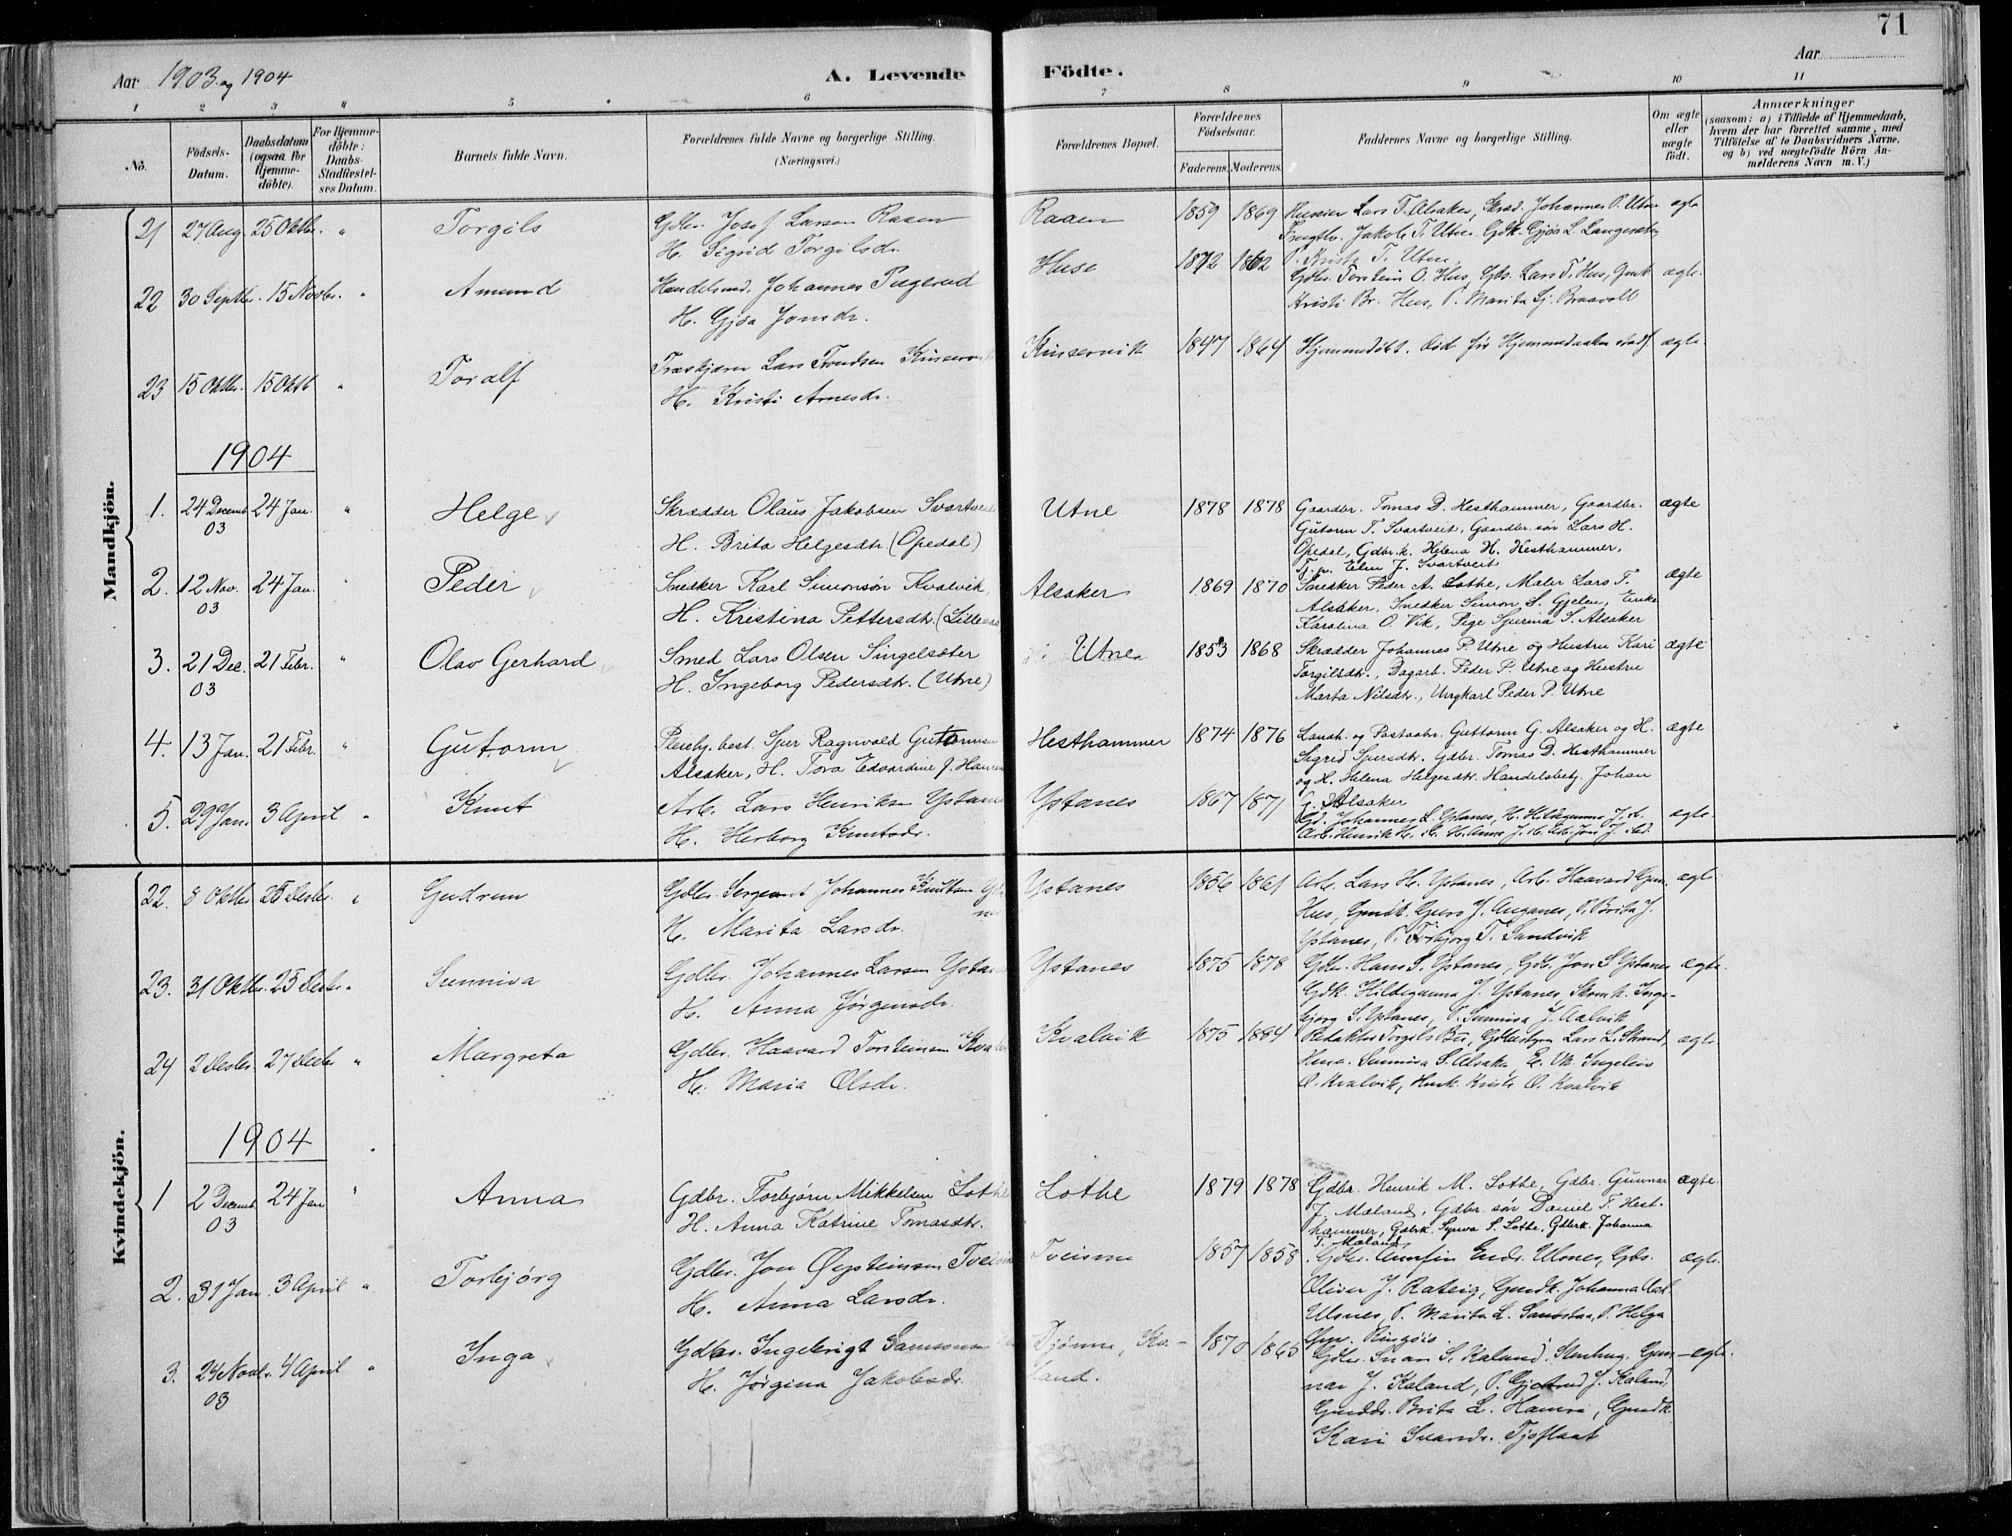 71
Aar 1903 og 1904
A. Levende Födte.
Aar
1 2 3 4 5 6 7 8 9 10 11
No.
Födsels-Datum.
Daabsdatum (ogsaa for Hjemmedöbte).
For Hjemmedöbte: Daabs-Stadfæstelses Datum.
Barnets fulde Navn.
Forældrenes fulde Navne og borgerlige Stilling. (Næringsvei.)
Forældrenes Bopæl.
Forældrenes Födselsaar.
Faderens. Moderens.
Faddernes Navne og borgerlige Stilling.
Om ægte eller uægte födt.
Anmærkninger
(saasom: a) i Tilfælde af Hjemmedaab,
hvem der har forrettet samme, med
Tilföielse af to Daabsvidners Navne,
og b) ved uægtefödte Börn An-
melderens Navn m. V.)
Mandkjön.
21 27 Aug. 25 Oktbr. " Torgils
Gdbr. Josef Larsen Raaen
H. Sigrid Torgilsdr.
Raaen 1859 1869
Huseier Lars T. Alsaker, Skræd. Johannes P. Utne ægte
Jakob T. Utne
22 30 Septbr. 15 Novbr. " Amund
Handelsmd. Johannes
H. Gjøa Jonsdr.
Huse 1872 1862
Gdbr. Torstein O. Hus, Gdb. Lars T. Hus, ægte
Kristi Br. Hus, P. Marita
23 15 Oktbr. 15 Oktb " Toralf
Træskjærer Lars Trondsen Kinservik
H. Kristi Arnesdr.
Kinservik 1847 1864 Hjemmedøbt. Død før Hjemmedaaben stadf. ægte
1904
1. 24 Decemb 03 24 Jan. " Helge
Skrædder Olaus Jakobsen Svartveit
H. Brita Helgesdtr (Opedal)
Utne 1878 1878
Gaardbr. Tomas D. Hesthammer, Gaardbr. ægte
Gutorm T. Svartveit, Gaardbr. søn Lars H.
Opedal, Gdbr.k. Helena H. Hesthammer,
Elen J. Svartveit
2. 12 Nov. 03 24 Jan. " Peder
Snedker Karl Simonsøn Kvalvik
H. Kristina Pettersdtr.
Alsaker 1869 1870
Snedker Peder A. Lothe, Maler Lars T. ægte
Alsaker, Snedker Simon S. Gjelen, Enke
Karolina O. Vik, Pige Sjurina S. Alsaker
3. 21 Dec. 03 21 Febr. " Olav Gerhard
Smed Lars Olsen Singelsæter
H. Ingeborg Pedersdtr. (Utne)
Utne 1853 1868
Skrædder Johannes P. Utne og Hustru Kari ægte
Torgilsdtr., Dagarb. Peder P. Utne og Hustru
Marta Nilsdtr., Ungkarl Peder P. Utne
4. 13 Jan. 21 Febr. " Gutorm
Sjur Ragnvald Gutormsen
Alsaker, H. Tora Edvardine J. Hansen
Hesthammer 1874 1876
Landh. og Postaabn. Guttorm G. Alsaker og H. ægte
Sigrid Sjursdtr. Gdbr. Tomas D. Hesthammer
og H. Helena Helgesdtr. Handelsbetj. Johan
G. Alsaker
5. 29 Jan. 3 April " Knut
Arb. Lars Henriksen Ystanes
H. Herborg Knutsdr.
Ystanes 1867 1871
Gd. Johannes L. Ystanes, H. Hildegunna J. ægte
Kvindekjön.
22. 8 Oktbr. 25 Desbr. " Gudrun
Gdbr. Sergeant Johannes Knutsen Ystanes
H. Marita Larsdr.
Ystanes 1856 1861
Arb. Lars H. Ystanes, Arb. Haavard Gun. ægte
Hus, Guro J. Auganes, P. Brita J.
Ystanes, P. Torbjorg T. Sandvik
23. 31 Oktbr. 25 Desbr. " Sunniva
Gdbr. Johannes Larsen Ystanes
H. Anna Jørgensdr.
Ystanes 1875 1878
Gdbr. Hans S. Ystanes, Gdb. Jon S. Ystanes ægte.
Gdk. Hildegunna J. Ystanes, Inge-
bjørg S. Ystanes, P. Sunniva J. Aalvik
24 2 Desbr. 27 Desbr " Margreta
Gdbr. Haavard Torsteinsen Kvalvik
H. Maria Olsdr.
Kvalvik 1875 1884
Redaktør Torgils Bu, Lars L. Strand, ægte
Sunniva S. Alsaker, Ingeleiv
O. Kvalvik, Kristi O. Kvalvik
1904
1 2 Decemb 03 24 Jan " Anna
Gdbr. Torbjørn Mikkelsen Lothe
H. Anna Katrine Tomasdtr.
Lothe 1879 1878
Gdbr. Henrik M. Lothe, Gdbr. Gunnar ægte
J. Mæland, Gdbr. søn Daniel T. Hest-
hammer, Gdbrk. Synva S. Lothe, Gdbrk. Johanna
T. Mæland
2. 31 Jan. 3 April " Torbjørg
Gdbr. Jon Øysteinsen Tveisme
H. Anna Larsdr.
Tveisme 1857 1858
Gdbr. Aamfin Endr. Ulsnes, Gdb. ægte
Oliver J. Rateig, Johanna
Ulsnes, P. Marita L. P. Helga
Ringøis
3. 24 Novbr. 03 4 April " Inga
Gdbr. Ingebrigt Samsonsen
H. Jørgina Jakobsdr.
Djønne, Ka-
land.
1870 1865
Gdbr. S. Kaland, Gun- ægte.
nar J. Kaland, P. Gjertrud J. Kaland,
Brita L. Hamre,
Kari Tjoflaat